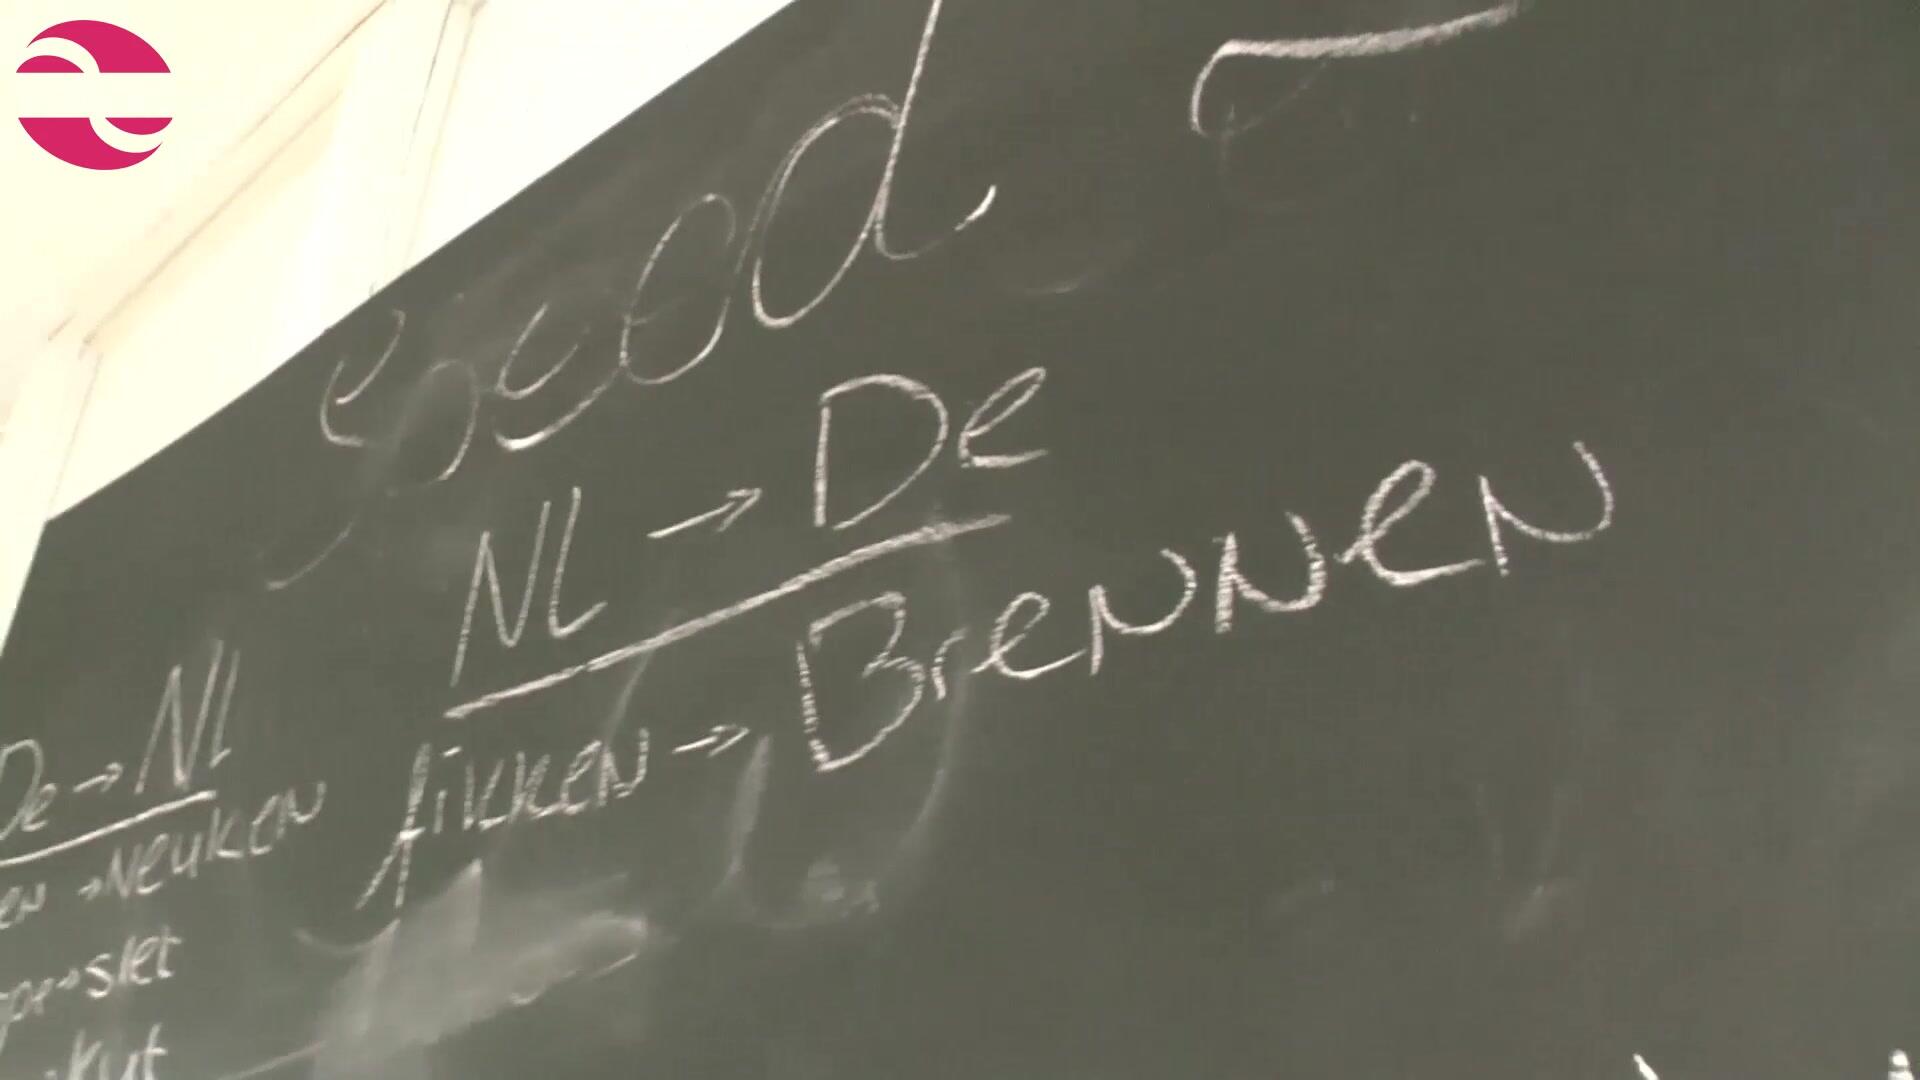 NL → De
fikken → Brennen
De → Nl
en → Neuken
→ slet
kut